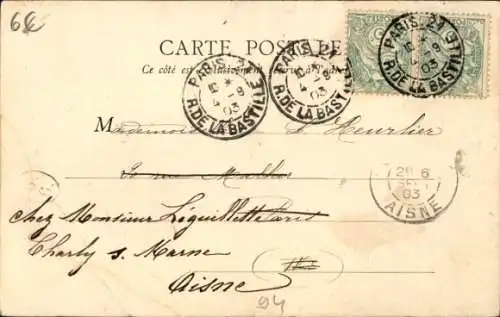 6€
CARTE POSTALE
Ce côté est exclusivement réservé à l'adresse
PARIS. 27
R. DE LA BASTILLE
15
4 -9
03
PARIS. 27
R. DE LA BASTILLE
4 -9
03
PARIS. 27
R. DE LA BASTILLE
15
4 -9
03
Mademoiselle Heurlier
rue
Chez Monsieur Léguillette Paris
Charly s. Marne
Aisne
28 6
03
AISNE
94